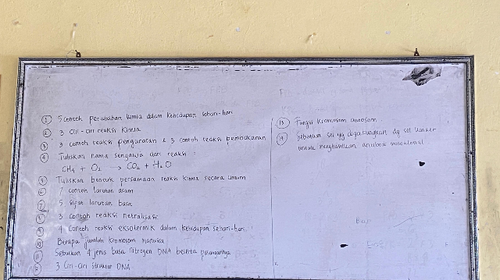 ① 5 contoh perubahan kimia dalam kehidupan sehari-hari
② 3 ciri-ciri reaksi kimia
③ 3 contoh reaksi penguraian & 3 contoh reaksi pembakaran
④ Tuliskan nama senyawa dari reaksi
CH4 + O2 → CO2 + H2O
⑤ Tuliskan bentuk persamaan reaksi kimia secara umum
⑥ 7 contoh larutan asam
⑦ 5 sifat larutan basa
⑧ 3 contoh reaksi netralisasi
⑨ 4 contoh reaksi eksoterm dalam kehidupan sehari-hari
⑩ Berapa jumlah kromosom manusia
⑪ Sebutkan 4 jenis basa nitrogen DNA beserta pasangannya
⑫ 3 ciri-ciri struktur DNA
⑬ Fungsi kromosom
⑭ Sebutkan sel yg dipersiapkan dg sel